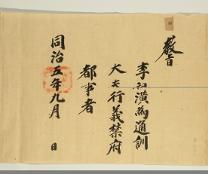 教旨
李○潢爲通訓
大夫行義禁府
都事者
同治五年九月 日